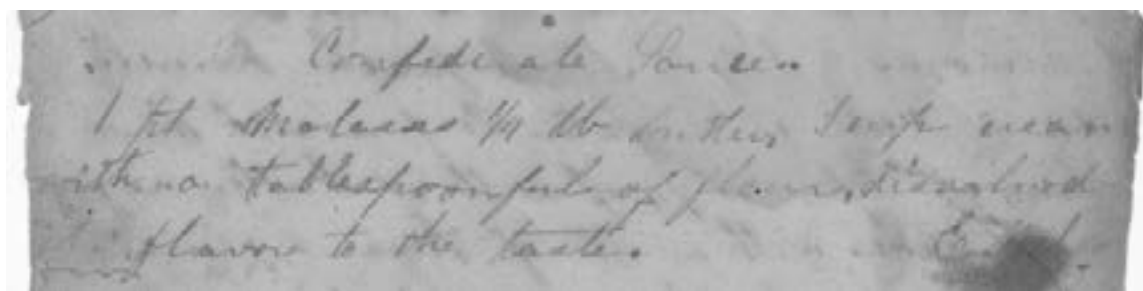 Confederate Sauce.
1 pt Molasses 1/4 lb butter, 1 cup cream
with a tablespoonful of flour, dissolved
flavor to the taste.